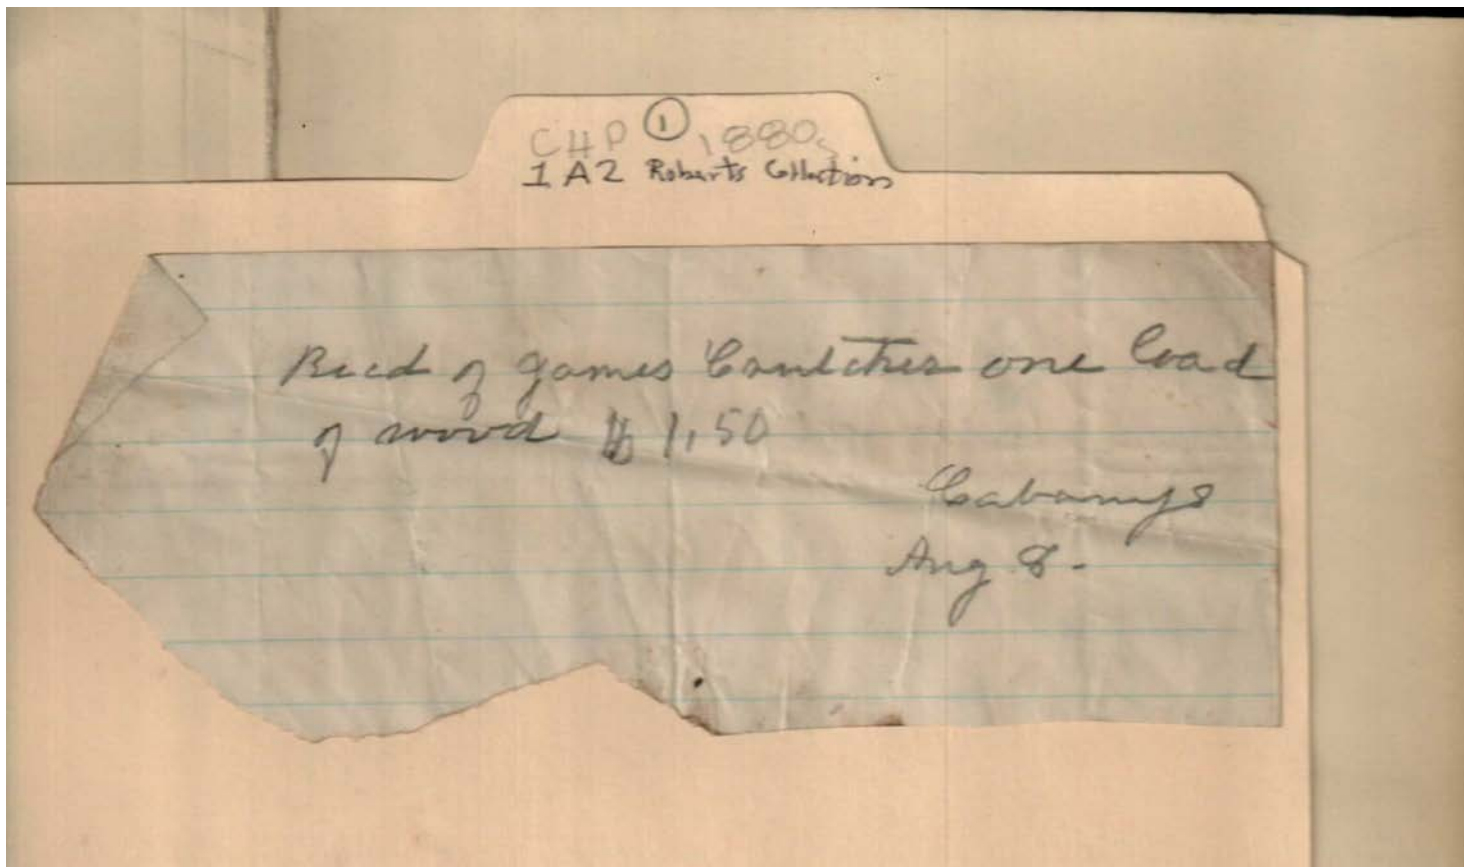 CHP ① 1880s
1 A2 Roberts Collection
Recd of James one load
of wood $ 1,50
Aug 8 -